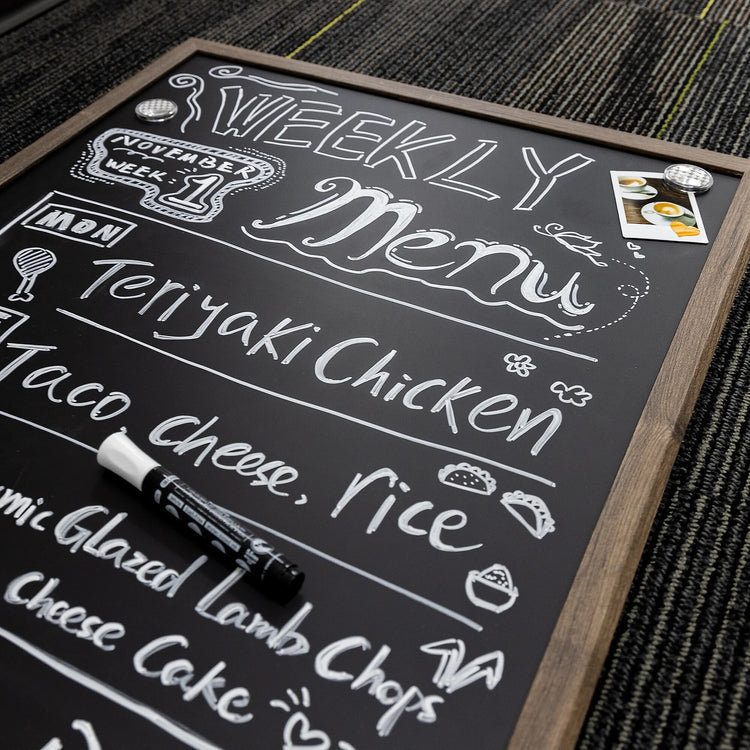 WEEKLY
NOVEMBER
WEEK: 1
Menu
MON
Teriyaki Chicken
Taco cheese, rice
Glazed Lamb Chops
Cheese Cake